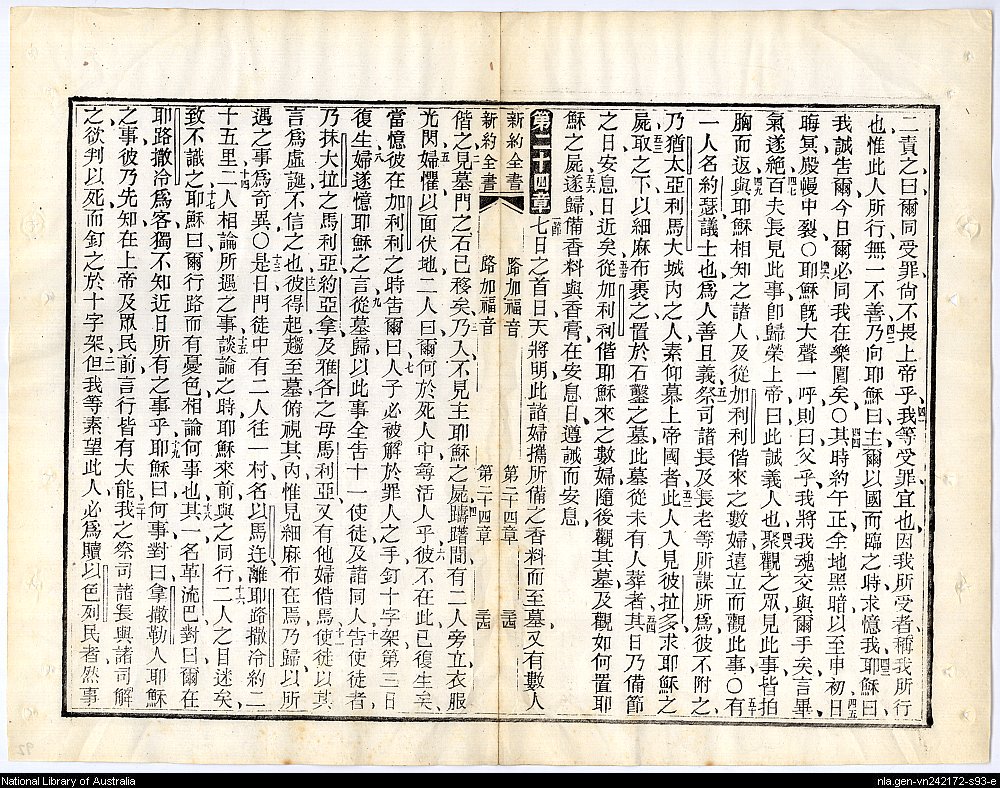 二責之曰爾同受罪尙不畏上帝乎我等受罪宜也因我所受者稱我所行
也惟此人所行無一不善乃向耶穌曰主爾以國而臨之時求憶我耶穌曰
我誠告爾今日爾必同我在樂園矣○其時約午正全地黑暗以至申初日
晦冥殿幔中裂○耶穌旣大聲一呼則曰父乎我將我魂交與爾手矣言畢
氣遂絶百夫長見此事卽歸榮上帝曰此誠義人也聚觀之眾見此事皆拍
胸而返與耶穌相知之諸人及從加利利偕來之數婦遠立而觀此事○有
一人名約瑟議士也爲人善且義祭司諸長及長老等所謀所爲彼不附之
乃猶太亞利馬大城內之人素仰慕上帝國者此人入見彼拉多求耶穌之
屍取之下以細麻布裹之置於石鑿之墓此墓從未有人葬者其日乃備節
之日安息日近矣從加利利偕耶穌來之數婦隨後觀其墓及觀如何置耶
穌之屍遂歸備香料與香膏在安息日遵誡而安息
第二十四章 七日之首日天將明此諸婦攜所備之香料而至墓又有數人
新約全書 路加福音 第二十四章 三四
新約全書 路加福音 第二十四章 三四
偕之見墓門之石已移矣乃入不見主耶穌之屍躊躇間有二人旁立衣服
光閃婦懼以面伏地二人曰爾何於死人中尋活人乎彼不在此已復生矣
當憶彼在加利利之時告爾曰人子必被解於罪人之手釘十字架第三日
復生婦遂憶耶穌之言從墓歸以此事全告十一使徒及諸同人告使徒者
乃抹大拉之馬利亞約亞拿及雅各之母馬利亞又有他婦偕焉使徒以其
言爲虛誕不信之也彼得起趨至墓俯視其內惟見細麻布在焉乃歸以所
遇之事爲奇異○是日門徒中有二人往一村名以馬迕離耶路撒冷約二
十五里二人相論所遇之事談論之時耶穌來前與之同行二人之目迷矣
致不識之耶穌曰爾行路而有憂色相論何事也其一名革流巴對曰爾在
耶路撒冷爲客獨不知近日所有之事乎耶穌曰何事對曰拿撒勒人耶穌
之事彼乃先知在上帝及眾民前言行皆有大能我之祭司諸長與諸司解
之欲判以死而釘之於十字架但我等素望此人必爲贖以色列民者然事
National Library of Australia
nla.gen-vn242172-s93-e